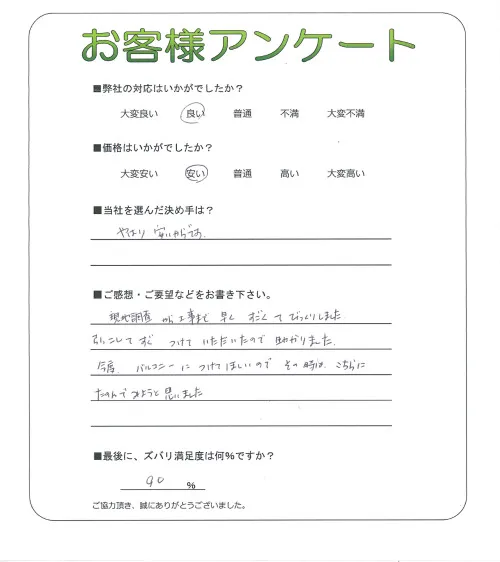 お客様アンケート
■弊社の対応はいかがでしたか？
大変良い 良い 普通 不満 大変不満
■価格はいかがでしたか？
大変安い 安い 普通 高い 大変高い
■当社を選んだ決め手は？
やはり 安いからです。
■ご感想・ご要望などをお書き下さい。
現地調査から工事まで 早く すごくてびっくりしました。
引っこしてすぐ つけていただいたので 助かりました。
今度 バルコニーにつけてほしいので その時は こちらに
たのんでみようと思いました
■最後に、ズバリ満足度は何％ですか？
90 ％
ご協力頂き、誠にありがとうございました。